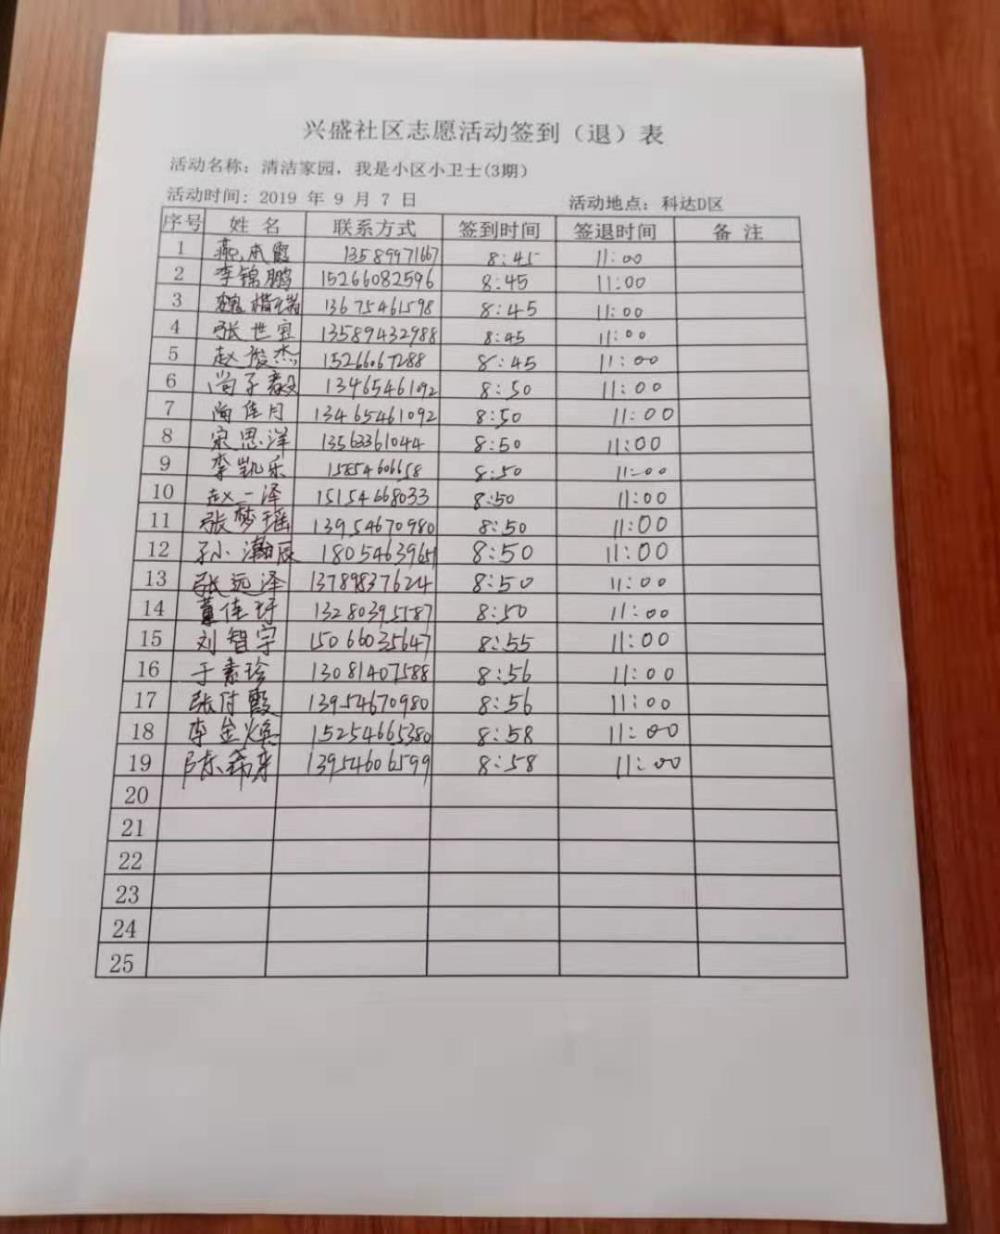 兴盛社区志愿活动签到（退）表
活动名称：清洁家园，我是小区小卫士(3期)
活动时间：2019 年 9 月 7 日 活动地点：科达D区
序号 姓 名 联系方式 签到时间 签退时间 备 注
1 燕本霞 13589971667 8:45 11:00
2 李锦鹏 15266082596 8:45 11:00
3 魏楷瑞 13675461598 8:45 11:00
4 张世宜 13589432988 8:45 11:00
5 赵俊杰 15266067288 8:45 11:00
6 尚子毅 13465461092 8:50 11:00
7 尚佳月 13465461092 8:50 11:00
8 宋思洋 13563361044 8:50 11:00
9 李凯乐 8:50 11:00
10 赵一泽 15154668033 8:50 11:00
11 张梦瑶 13954670980 8:50 11:00
12 孙瀚辰 8:50 11:00
13 张远泽 13789837624 8:50 11:00
14 董佳玗 13280395787 8:50 11:00
15 刘智宇 15066035647 8:55 11:00
16 于素珍 13081407588 8:56 11:00
17 张付霞 13954670980 8:56 11:00
18 李金焕 15254665380 8:58 11:00
19 13954606599 8:58 11:00
20
21
22
23
24
25